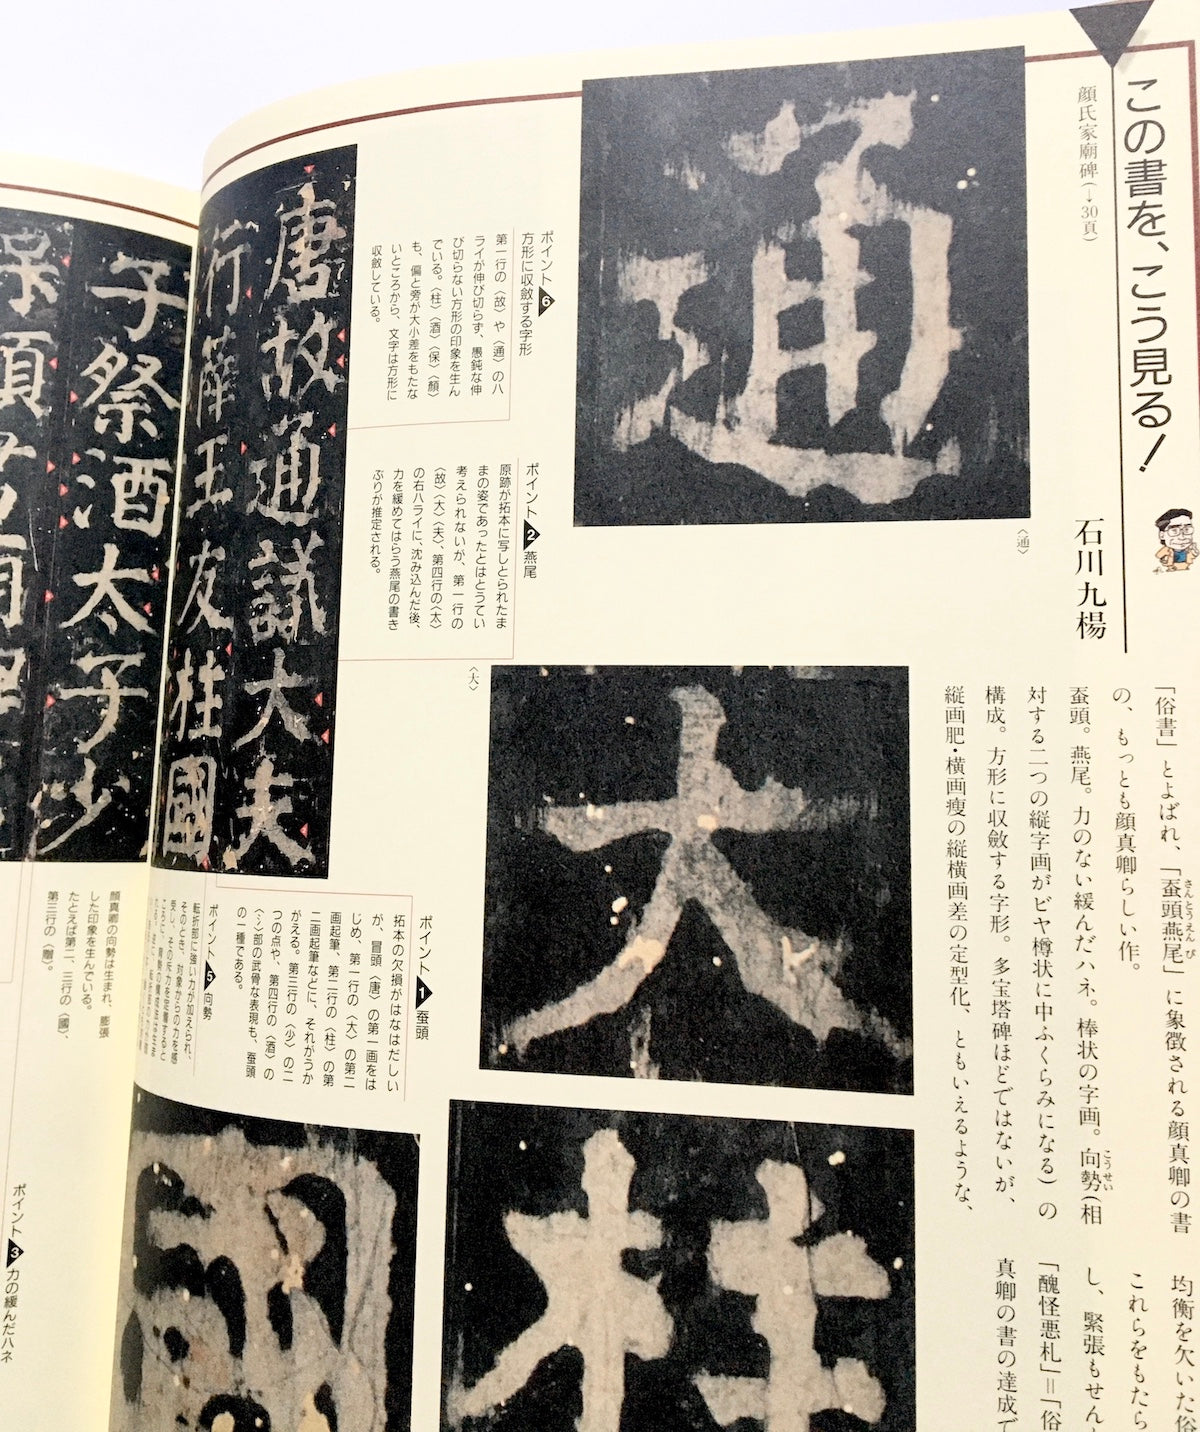 この書を、こう見る！
石川九楊
顔氏家廟碑(→30頁)
「俗書」とよばれ、「蚕頭燕尾」に象徴される顔真卿の書
さんとうえんび
の、もっとも顔真卿らしい作。
蚕頭。燕尾。力のない緩んだハネ。棒状の字画。向勢(相
こうせい
対する二つの縦字画がビヤ樽状に中ふくらみになる)の
構成。方形に収斂する字形。多宝塔碑ほどではないが、
縦画肥・横画痩の縦横画差の定型化、ともいえるような、
均衡を欠いた俗
これらをもたら
し、緊張もせん
「醜怪悪札」＝「俗
真卿の書の達成で
〈通〉
通
ポイント6
方形に収斂する字形
第一行の〈故〉や〈通〉の八
ライが伸び切らず、愚鈍な伸
び切らない方形の印象を生ん
でいる。〈柱〉〈酒〉〈保〉〈顔〉
も、偏と旁が大小差をもたな
いところから、文字は方形に
収斂している。
ポイント2 燕尾
原跡が拓本に写しとられたま
まの姿であったとはとうてい
考えられないが、第一行の
〈故〉〈大〉〈夫〉、第四行の〈太〉
の右ハライに、沈み込んだ後、
力を緩めてはらう燕尾の書き
ぶりが推定される。
〈大〉
大
柱
唐故通議大夫
行薛王友柱國
子祭酒太子少
保顔
ポイント1 蚕頭
拓本の欠損がはなはだしい
が、冒頭〈唐〉の第一画をは
じめ、第一行の〈大〉の第二
画起筆、第二行の〈柱〉の第
二画起筆などに、それがうか
がえる。第三行の〈少〉の二
つの点や、第四行の〈酒〉の
〈氵〉部の武骨な表現も、蚕頭
の一種である。
ポイント5 向勢
転折部に強い力が加えられ、
そのとき、対象からの力を感
受し、その反力を定着すると
顔真卿の向勢は生まれ、膨張
した印象を生んでいる。
たとえば第二、三行の〈國〉、
第三行の〈贈〉。
ポイント3 力の緩んだハネ